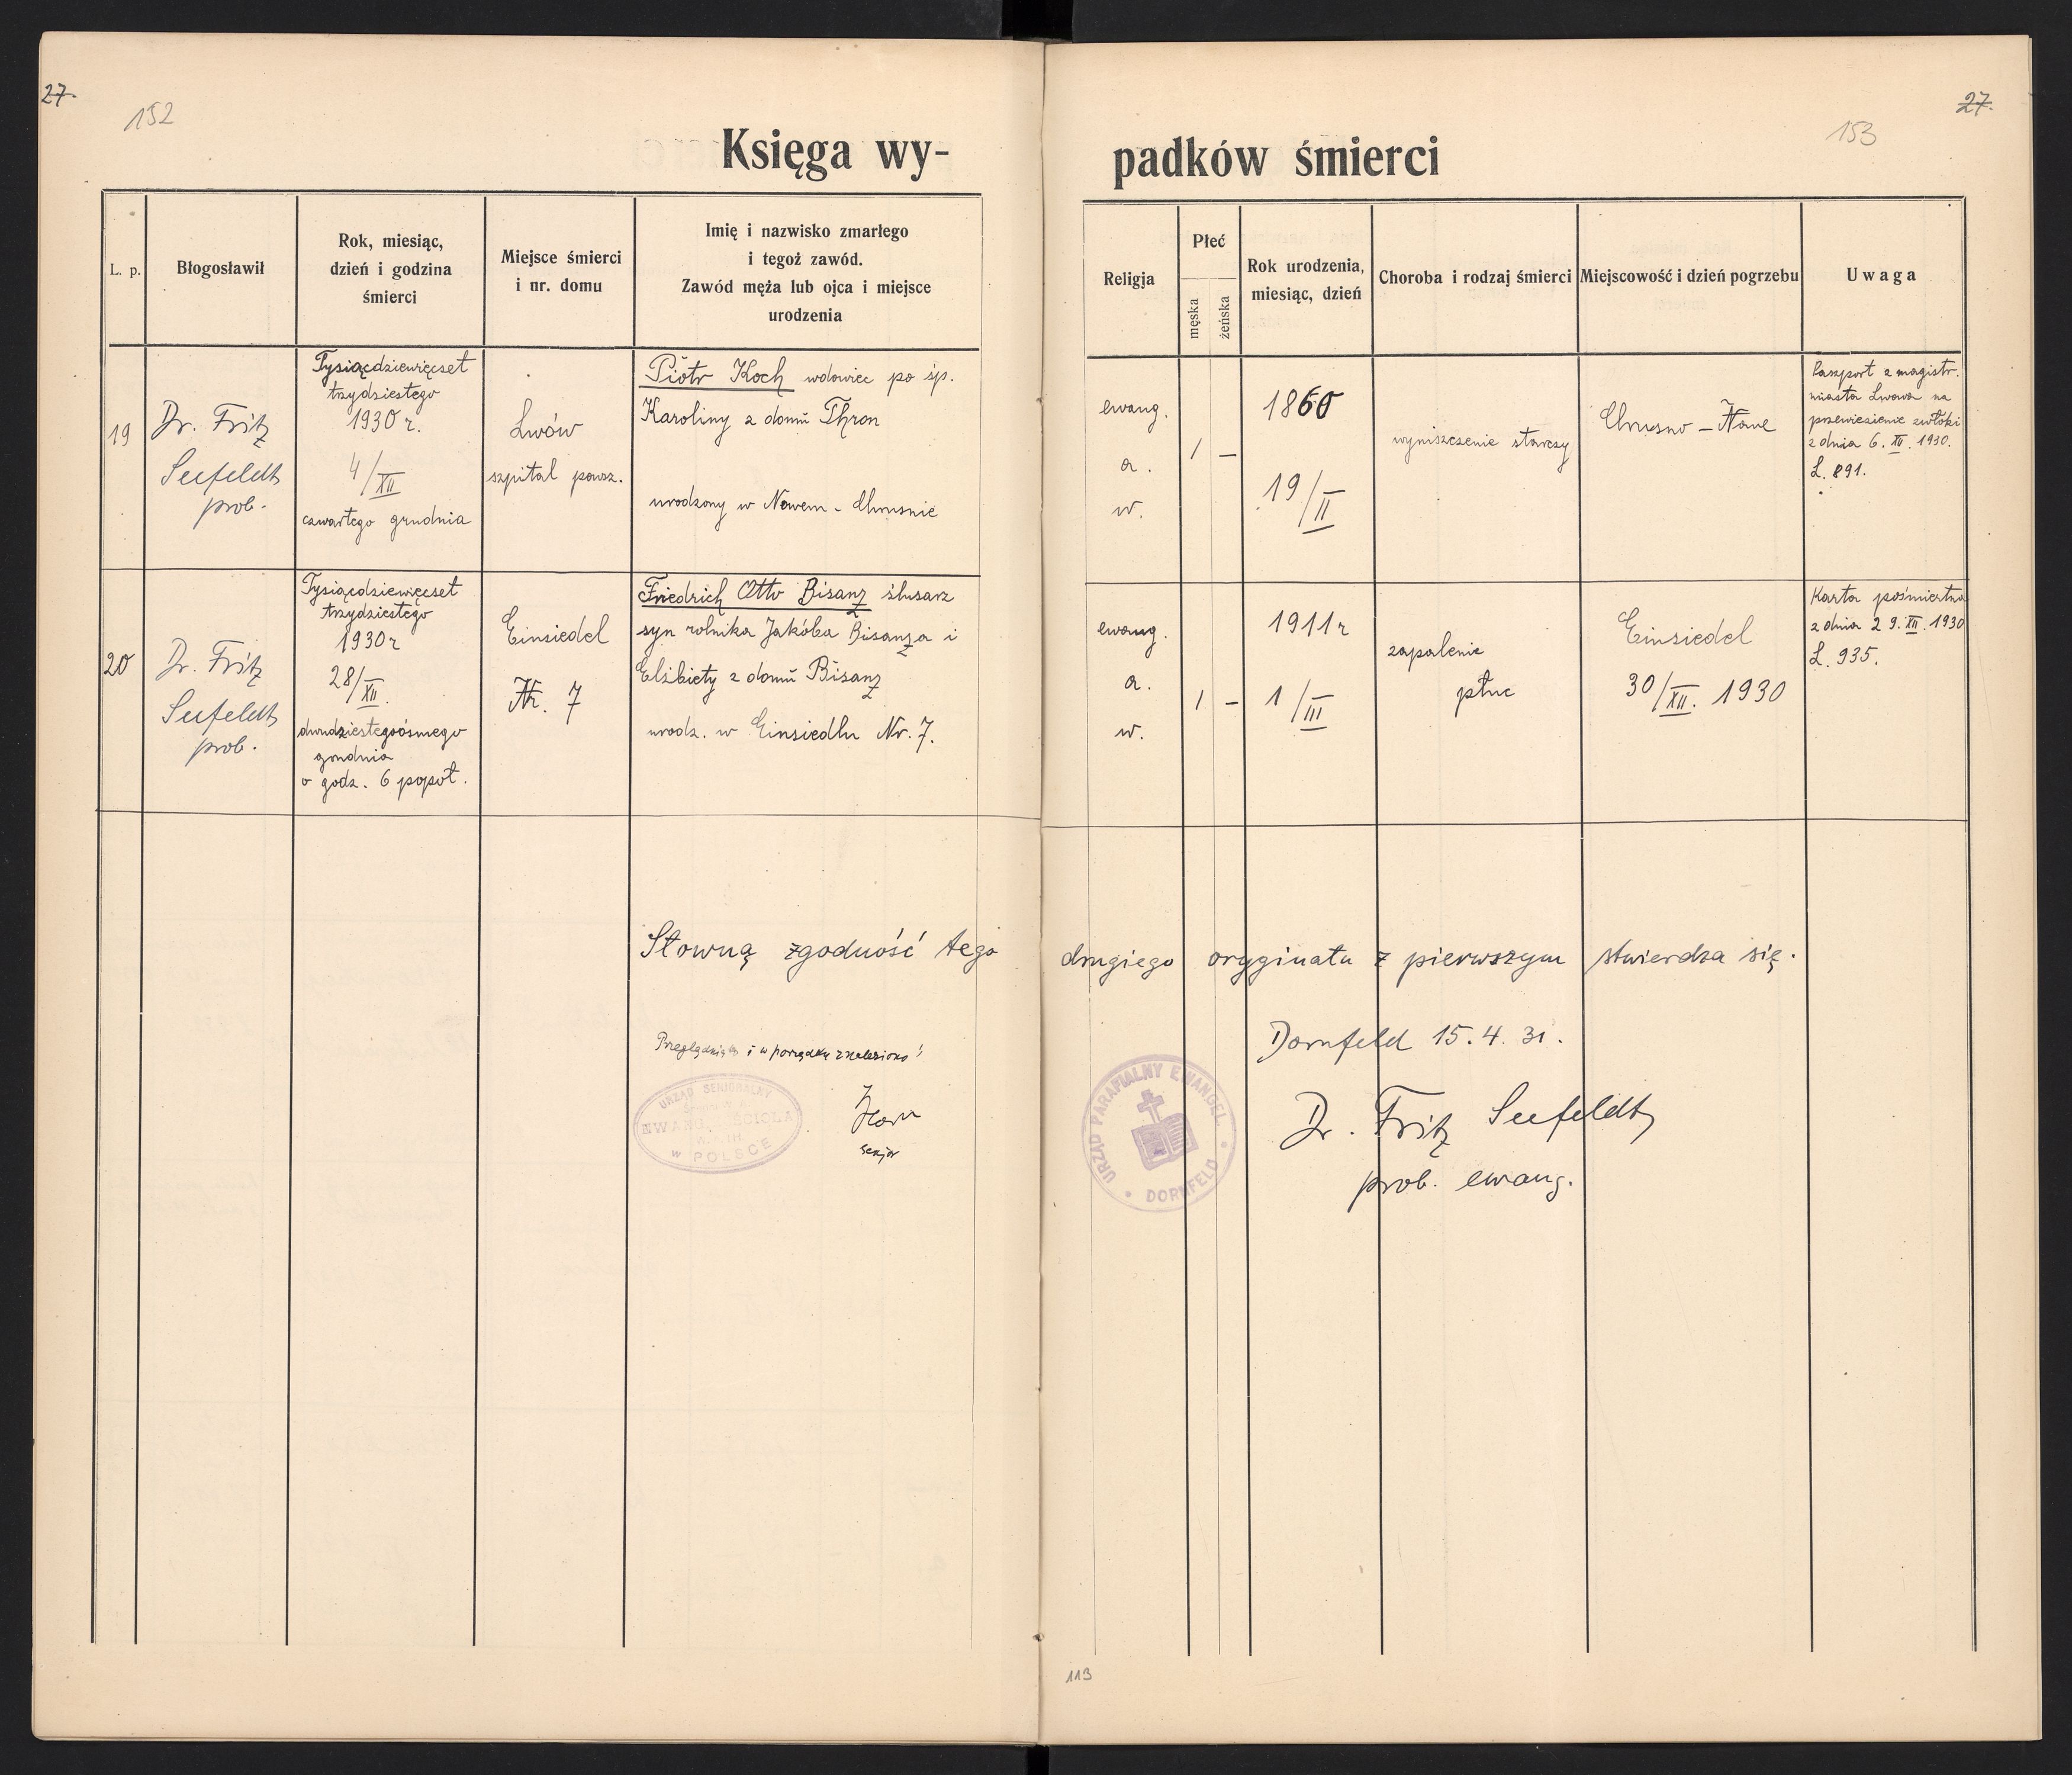 27.
152
Księga wy-
L. p.
Błogosławił
Rok, miesiąc,
dzień i godzina
śmierci
Miejsce śmierci
i nr. domu
Imię i nazwisko zmarłego
i tegoż zawód.
Zawód męża lub ojca i miejsce
urodzenia
19
Dr. Fritz
Seefeldt
prob.
Tysiącdziewięćset
trzydziestego
1930 r.
4/XII
czwartego grudnia
Lwów
szpital powsz.
Piotr Koch wdowiec po śp.
Karoliny z domu Thron
urodzony w Nowem - Chrusnie
20
Dr. Fritz
Seefeldt
prob.
Tysiącdziewięćset
trzydziestego
1930 r
28/XII.
dwudziestegoósmego
grudnia
o godz. 6 popoł.
Einsiedel
Nr. 7
Friedrich Otto Bisanz ślusarz
syn rolnika Jakóba Bisanza i
Elżbiety z domu Bisanz
urodz. w Einsiedlu Nr. 7.
Słowną zgodność tego
i w porządku znaleziono!
senjor
URZĄD SENJORALNY
w POLSCE
27.
153
padków śmierci
Religja
Płeć
męska
żeńska
Rok urodzenia,
miesiąc, dzień
Choroba i rodzaj śmierci
Miejscowość i dzień pogrzebu
Uwaga
ewang.
a.
w.
1
–
1860
19/II
wyniszczenie starczy
Chrusno – Nowe
Paszport z magistr.
miasta Lwowa na
przewiezienie zwłoki
z dnia 6. XII. 1930.
L. 891.
ewang.
a.
w.
1
–
1911 r
1/III
zapalenie
płuc
Einsiedel
30/XII. 1930
Karta pośmiertna
z dnia 29. XII. 1930
L. 935.
drugiego oryginału z pierwszym stwierdza się.
Dornfeld 15. 4. 31.
Dr. Fritz Seefeldt
prob. ewang.
URZĄD PARAFIALNY EWANGEL.
DORNFELD
113